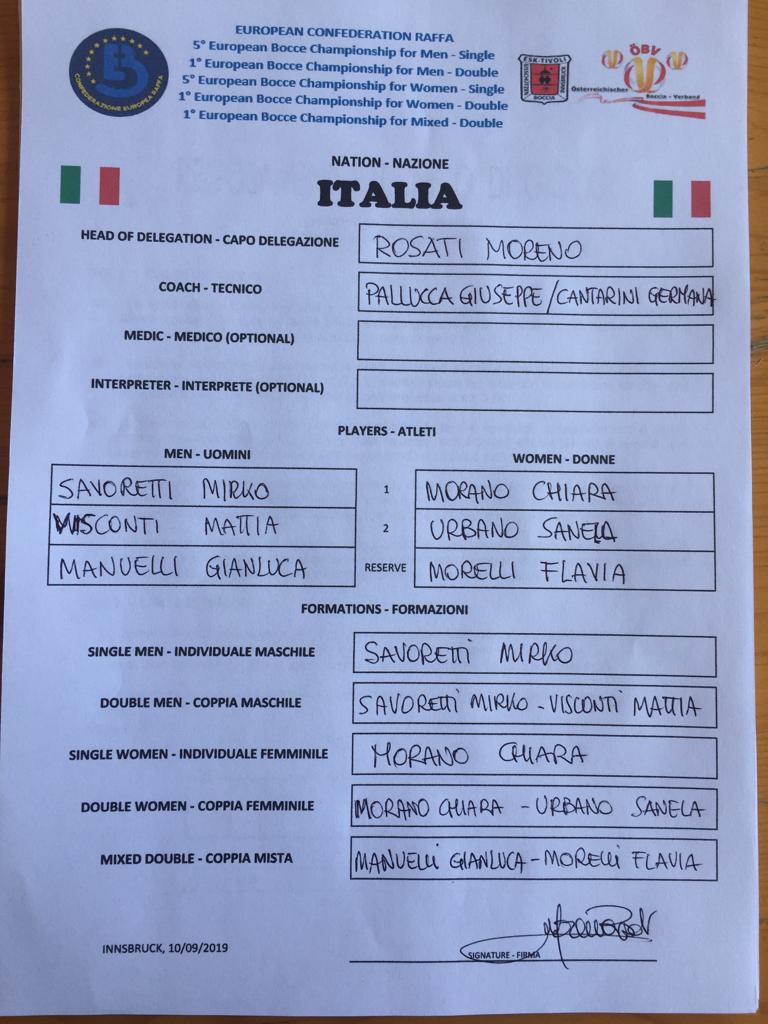 EUROPEAN CONFEDERATION RAFFA
5° European Bocce Championship for Men - Single
1° European Bocce Championship for Men - Double
5° European Bocce Championship for Women - Single
1° European Bocce Championship for Women - Double
1° European Bocce Championship for Mixed - Double
CONFEDERAZIONE EUROPEA RAFFA
ESK-TIVOLI
BOCCIA
ÖBV
Österreichischer Boccia - Verband
NATION - NAZIONE
ITALIA
HEAD OF DELEGATION - CAPO DELEGAZIONE ROSATI MORENO
COACH - TECNICO PALLUCCA GIUSEPPE / CANTARINI GERMANA
MEDIC - MEDICO (OPTIONAL)
INTERPRETER - INTERPRETE (OPTIONAL)
PLAYERS - ATLETI
MEN - UOMINI WOMEN - DONNE
SAVORETTI MIRKO 1 MORANO CHIARA
VISCONTI MATTIA 2 URBANO SANELA
MANUELLI GIANLUCA RESERVE MORELLI FLAVIA
FORMATIONS - FORMAZIONI
SINGLE MEN - INDIVIDUALE MASCHILE SAVORETTI MIRKO
DOUBLE MEN - COPPIA MASCHILE SAVORETTI MIRKO - VISCONTI MATTIA
SINGLE WOMEN - INDIVIDUALE FEMMINILE MORANO CHIARA
DOUBLE WOMEN - COPPIA FEMMINILE MORANO CHIARA - URBANO SANELA
MIXED DOUBLE - COPPIA MISTA MANUELLI GIANLUCA - MORELLI FLAVIA
INNSBRUCK, 10/09/2019
SIGNATURE - FIRMA